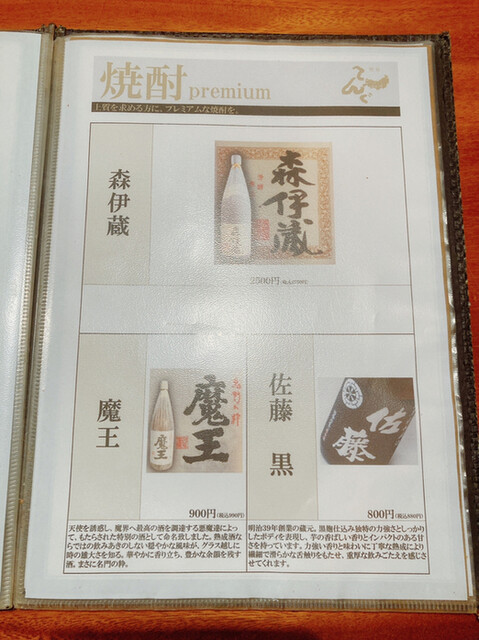 焼酎premium
てんぐ
上質を求める方に、プレミアムな焼酎を。
森伊蔵
森伊蔵
2500円(税込2750円)
魔王
魔王
魔王
900円(税込990円)
天使を誘惑し、魔界へ最高の酒を調達する悪魔達によって、もたらされた特別の酒として命名致しました。熟成酒ならではの飲みあきのしない穏やかな風味が、グラス越しに時の雄大さを知る。華やかに香り立ち、豊かな余韻を残す酒。まさに名門の粋。
佐藤 黒
佐藤
800円(税込880円)
明治39年創業の蔵元。黒麹仕込み独特の力強さとしっかりしたボディを表現し、芋の香ばしい香りとインパクトのある甘さを持っています。力強い香りと味わいに丁寧な熟成により繊細で滑らかな舌触りをもたせ、重厚な飲みごたえを感じさせてくれます。